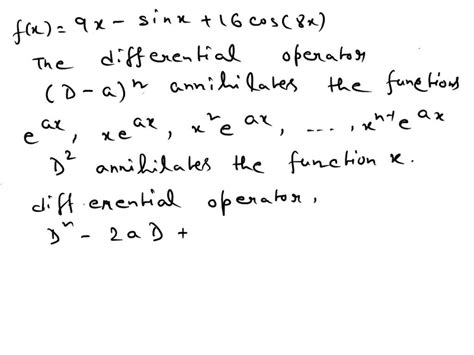 f(x) = 9x - sinx + 16 cos(8x)
The differential operator
(D-a)ⁿ annihilates the functions
e^ax, xe^ax, x²e^ax, ..., xⁿ⁻¹e^ax
D² annihilates the function x.
differential operator,
Dⁿ - 2aD +